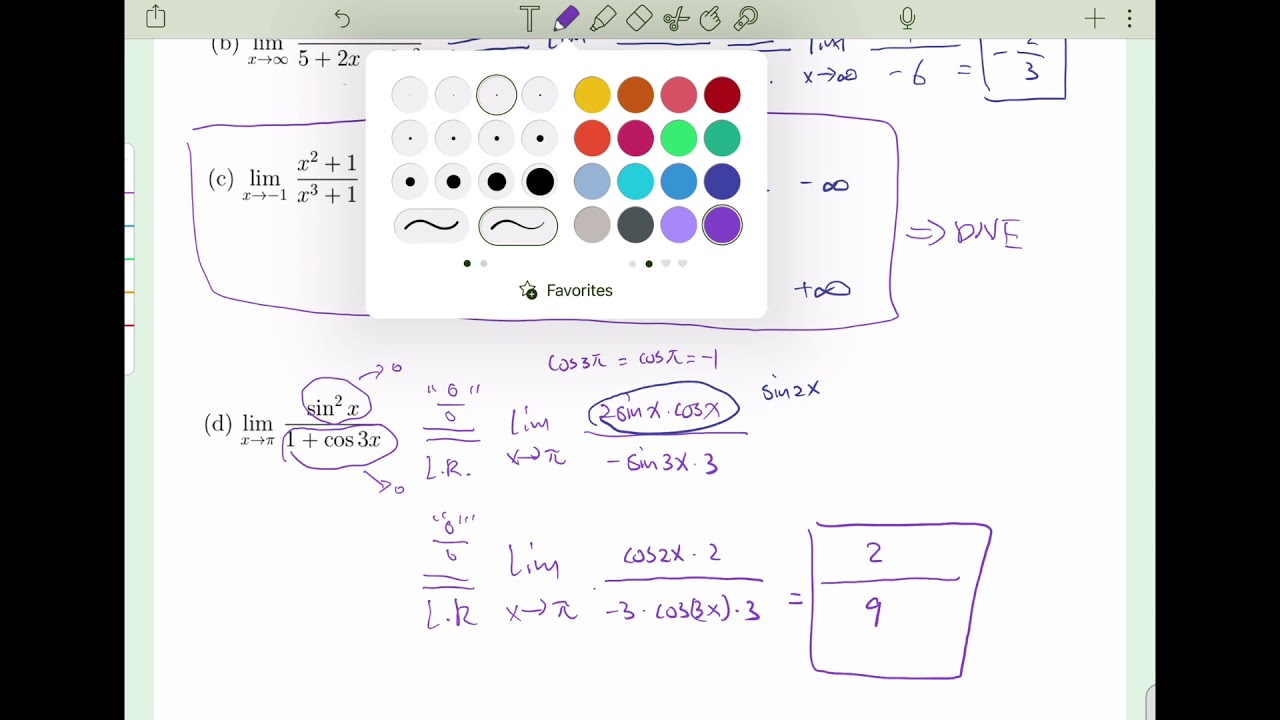 (b) lim x→∞ 5 + 2x
lim x→∞ -6 = - 2/3
(c) lim x→-1 x² + 1 / x³ + 1
- ∞
+∞
⇒ DNE
Favorites
cos3π = cosπ = -1
(d) lim x→π sin² x / 1 + cos 3x
→ 0
→ 0
"0/0" L.R. lim x→π 2sinx·cosx / -sin3x·3
sin2x
"0/0" L.R lim x→π cos2x·2 / -3·cos(3x)·3 = 2/9